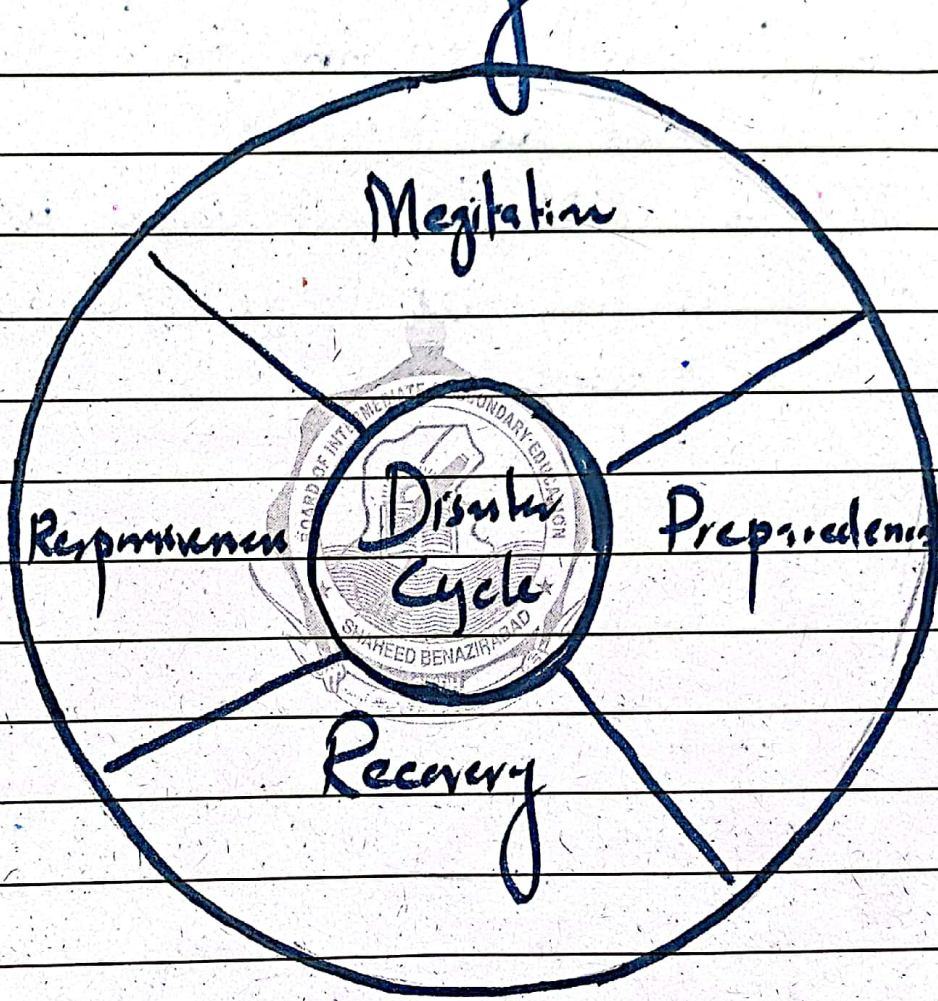 Megitation
Disaster
Cycle
Preparedenes
Recovery
BOARD OF INTERMEDIATE SECONDARY EDUCATION
SHAHEED BENAZIRABAD